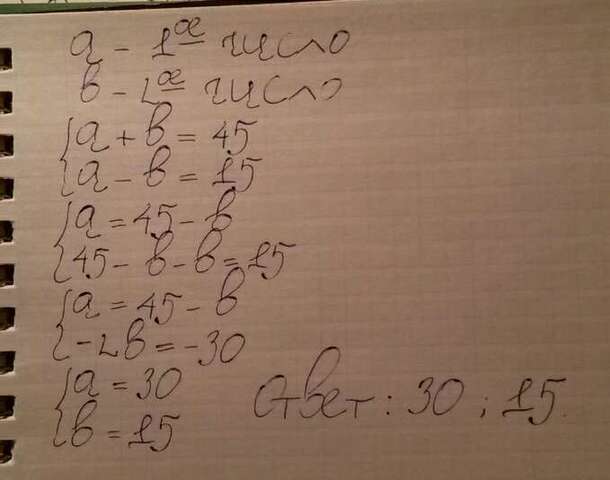 a - 1ое число
b - 2ое число
{a + b = 45
{a - b = 15
{a = 45 - b
{45 - b - b = 15
{a = 45 - b
{-2b = -30
{a = 30
{b = 15
Ответ: 30; 15.